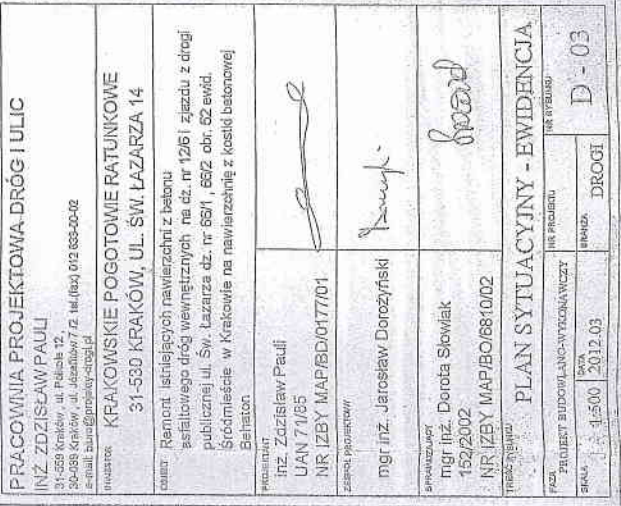 PRACOWNIA PROJEKTOWA DRÓG I ULIC
INŻ. ZDZISŁAW PAULI
31-559 Kraków, ul.
30-039 Kraków, ul. Józefitów 7/2 tel.(fax) 012 633-00-02
e-mail: biuro@projekty-drogi.pl
INWESTOR
KRAKOWSKIE POGOTOWIE RATUNKOWE
31-530 KRAKÓW, UL. ŚW. ŁAZARZA 14
OBIEKT
Remont istniejących nawierzchni z betonu
asfaltowego dróg wewnętrznych na dz. nr 12/6 i zjazdu z drogi
publicznej ul. Św. Łazarza dz. nr 66/1, 66/2 obr. 52 ewid.
Śródmieście w Krakowie na nawierzchnię z kostki betonowej
Behaton
PROJEKTANT
inż. Zdzisław Pauli
UAN 71/85
NR IZBY MAP/BD/0177/01
ZESPÓŁ PROJEKTOWY
mgr inż. Jarosław Dorożyński
SPRAWDZAJĄCY
mgr inż. Dorota Słowiak
152/2002
NR IZBY MAP/BO/6810/02
TREŚĆ RYSUNKU
PLAN SYTUACYJNY - EWIDENCJA
FAZA
PROJEKT BUDOWLANO-WYKONAWCZY
NR PROJEKTU
NR RYSUNKU
D - 03
SKALA
1:500
DATA
2012.03
BRANŻA
DROGI